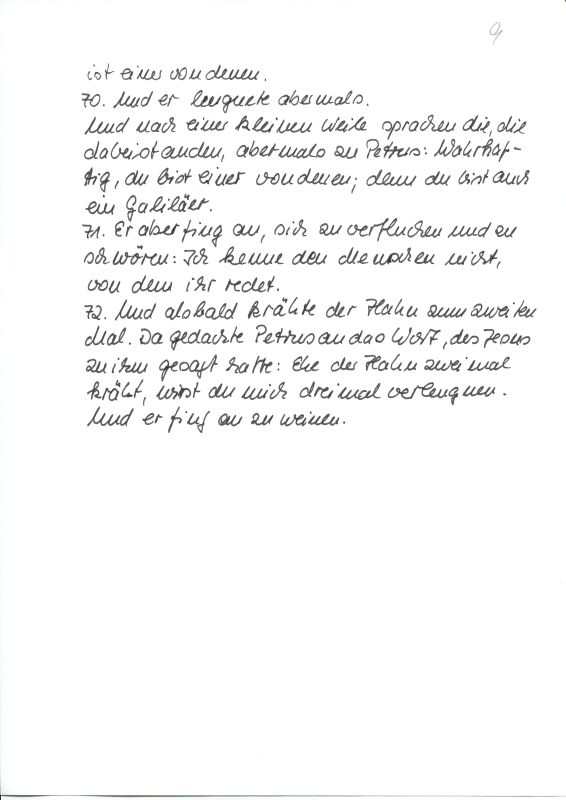 9
ist einer von denen.
70. Und er leugnete abermals.
Und nach einer kleinen Weile sprachen die, die
dabeistanden, abermals zu Petrus: Wahrhaf-
tig, du bist einer von denen; denn du bist auch
ein Galiläer.
71. Er aber fing an, sich zu verfluchen und zu
schwören: Ich kenne den Menschen nicht,
von dem ihr redet.
72. Und alsbald krähte der Hahn zum zweiten
Mal. Da gedachte Petrus an das Wort, des Jesus
zu ihm gesagt hatte: Ehe der Hahn zweimal
kräht, wirst du mich dreimal verleugnen.
Und er fing an zu weinen.